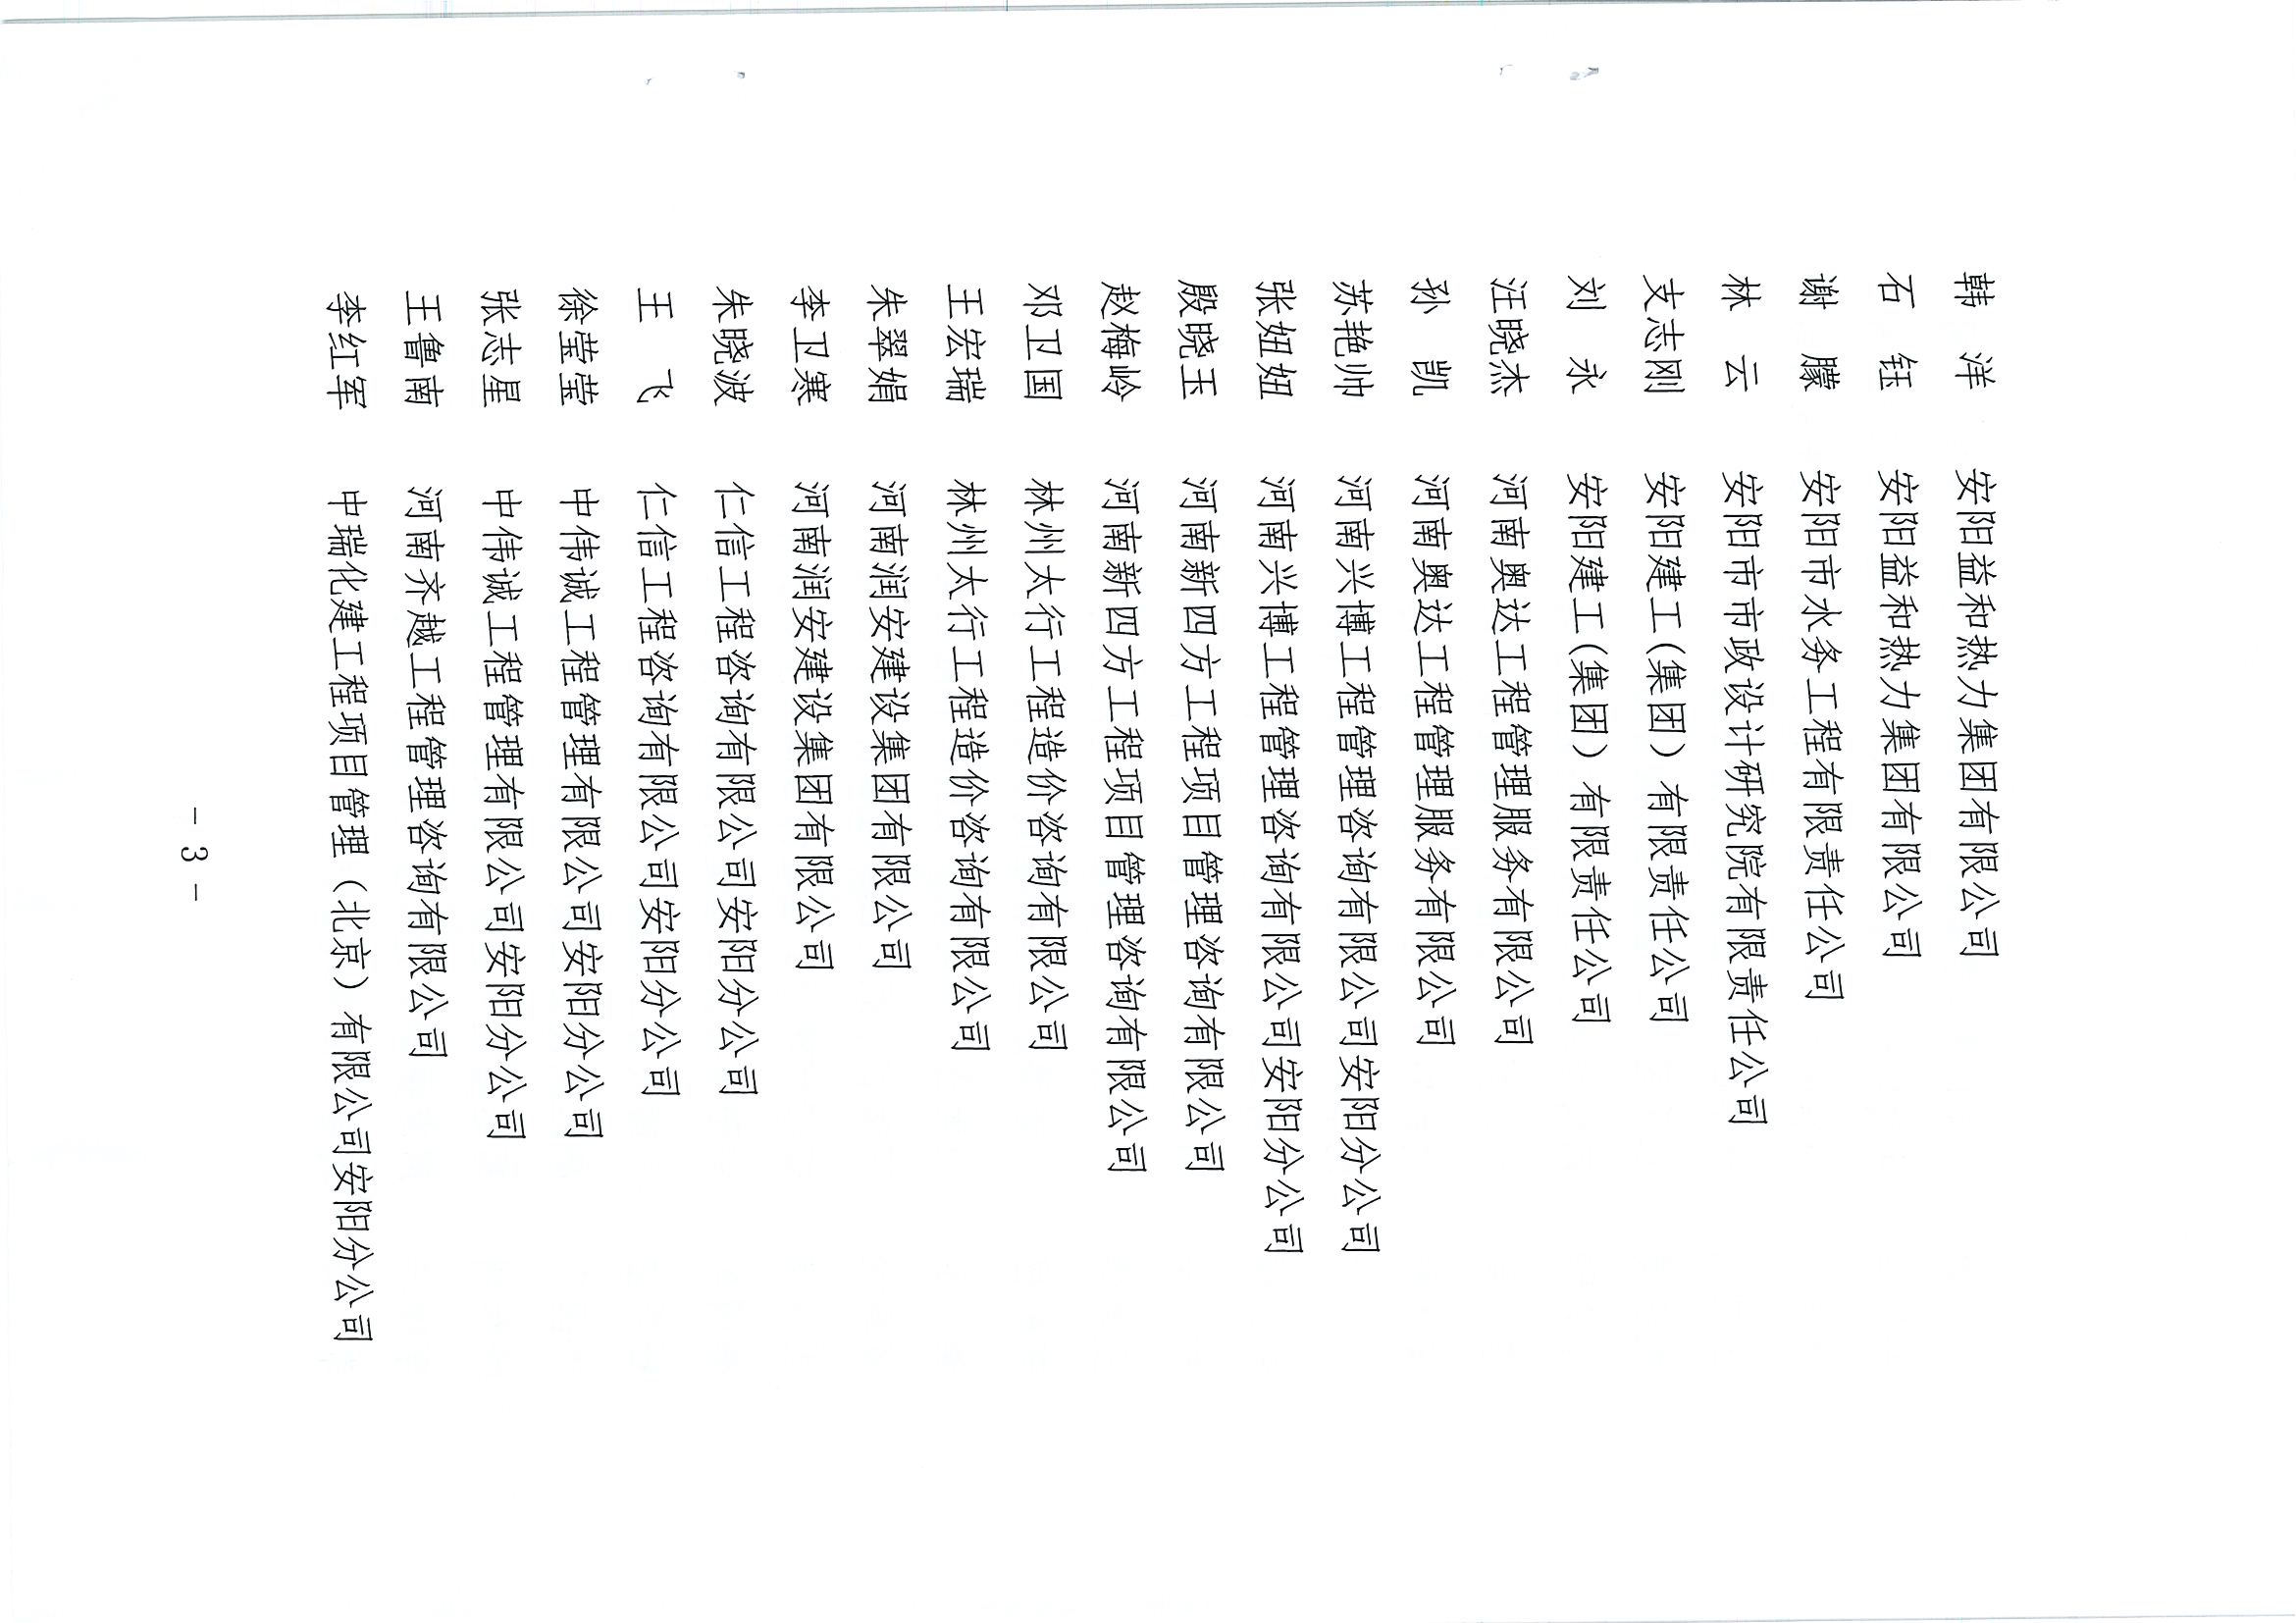 韩　洋　安阳益和热力集团有限公司
石　钰　安阳益和热力集团有限公司
谢　朦　安阳市水务工程有限责任公司
林　云　安阳市市政设计研究院有限责任公司
支志刚　安阳建工(集团）有限责任公司
刘　永　安阳建工(集团）有限责任公司
汪晓杰　河南奥达工程管理服务有限公司
孙　凯　河南奥达工程管理服务有限公司
苏艳帅　河南兴博工程管理咨询有限公司安阳分公司
张妞妞　河南兴博工程管理咨询有限公司安阳分公司
殷晓玉　河南新四方工程项目管理咨询有限公司
赵梅岭　河南新四方工程项目管理咨询有限公司
邓卫国　林州太行工程造价咨询有限公司
王宏瑞　林州太行工程造价咨询有限公司
朱翠娟　河南润安建设集团有限公司
李卫寒　河南润安建设集团有限公司
朱晓波　仁信工程咨询有限公司安阳分公司
王　飞　仁信工程咨询有限公司安阳分公司
徐莹莹　中伟诚工程管理有限公司安阳分公司
张志星　中伟诚工程管理有限公司安阳分公司
王鲁南　河南齐越工程管理咨询有限公司
李红军　中瑞化建工程项目管理（北京）有限公司安阳分公司
- 3 -